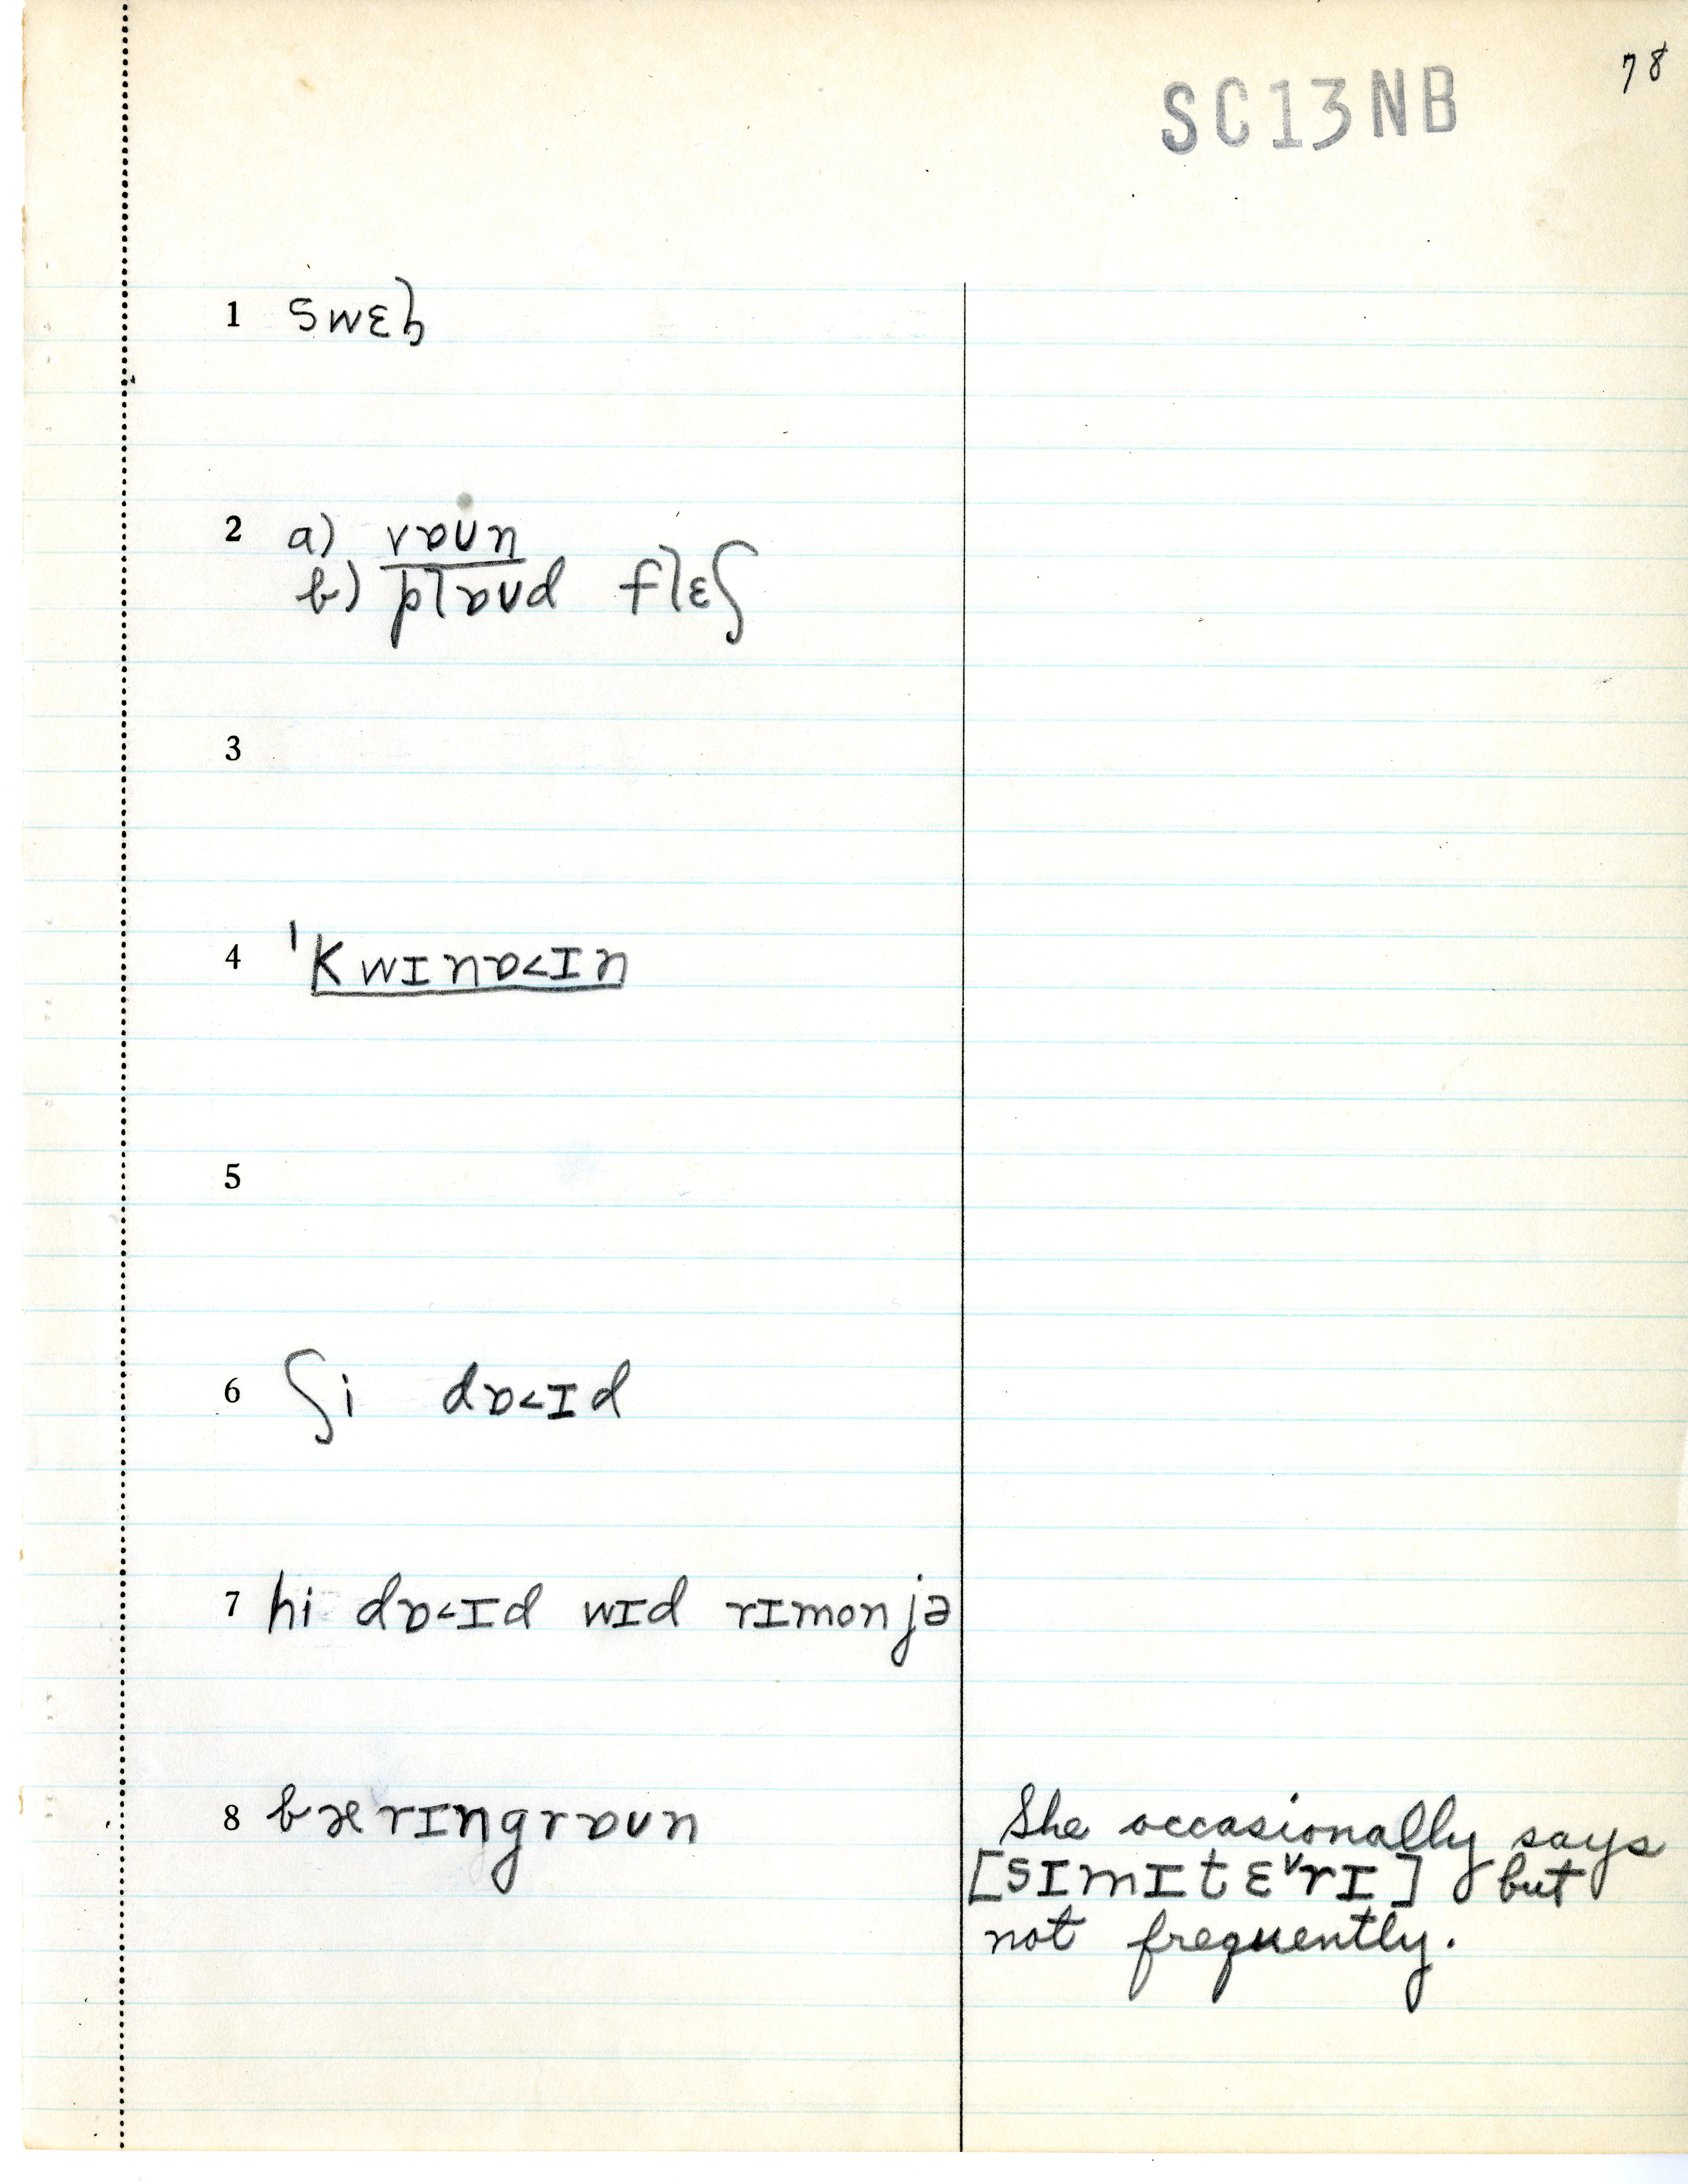 78
SC13NB
1 swɛʅ
2 a) rɒʊn
b) plɒʊd flɛʃ
3
4 ˈKwɪnɒ˂ɪn
5
6 ʃi dɒ˂ɪd
7 hi dɒ˂ɪd wɪd rɪmonjə
8 bærɪngrɒʊn
She occasionally says
[sɪmɪtɛ˅rɪ] but
not frequently.